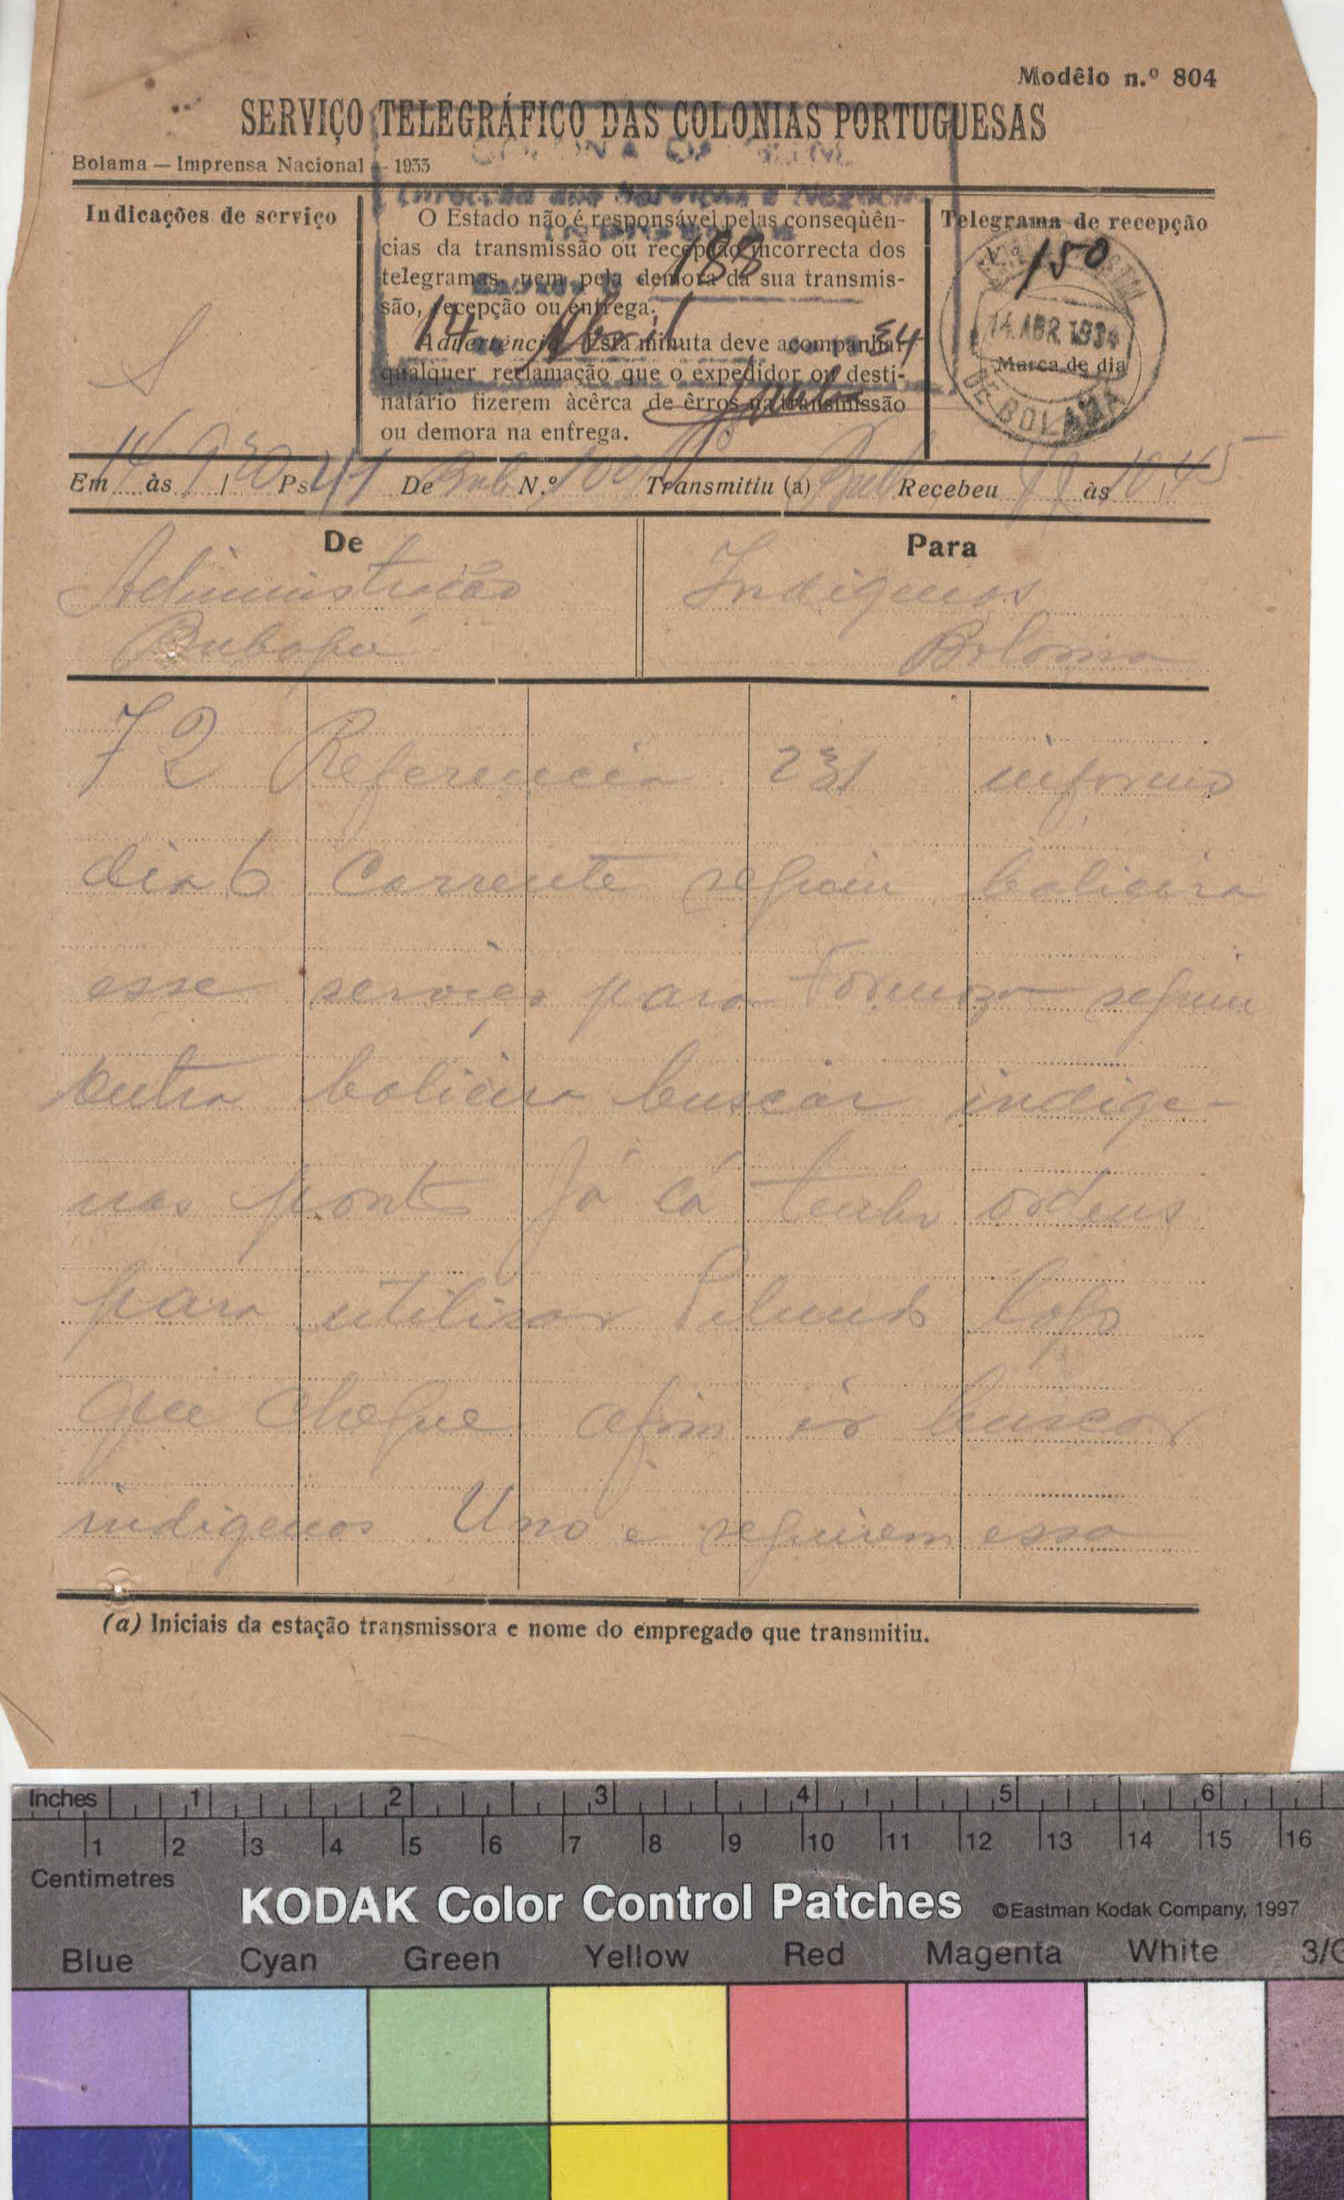 Modêlo n.º 804
SERVIÇO TELEGRÁFICO DAS COLONIAS PORTUGUESAS
Bolama — Imprensa Nacional — 1933
Indicações de serviço
O Estado não é responsável pelas conseqüên-
cias da transmissão ou recepção incorrecta dos
telegramas, nem pela demora da sua transmis-
são, recepção ou entrega.
Advertência Esta minuta deve acompanhar
qualquer reclamação que o expedidor ou desti-
natário fizerem àcêrca de êrros na transmissão
ou demora na entrega.
188
14 Abril 34
Telegrama de recepção
150
14 ABR 1934
Marca de dia
DE BOLAMA
S
Em 14 às 9,30 Ps. 41 De Bub N.º 100 Transmitiu (a) Bub Recebeu às 10,45
De
Administração
Bubaque
Para
Indigenas
Bolama
72 Referencia 231 informo
dia 6 corrente seguiu balieira
esse serviço para Formoza seguiu
outra balieira buscar indige-
nas ponto Já cá tenho ordens
para utilisar logo
que chegue afim ir buscar
indigenas Uno e seguirem essa
(a) Iniciais da estação transmissora e nome do empregado que transmitiu.
Inches 1 2 3 4 5 6
1 2 3 4 5 6 7 8 9 10 11 12 13 14 15 16
Centimetres
KODAK Color Control Patches ©Eastman Kodak Company, 1997
Blue Cyan Green Yellow Red Magenta White 3/C